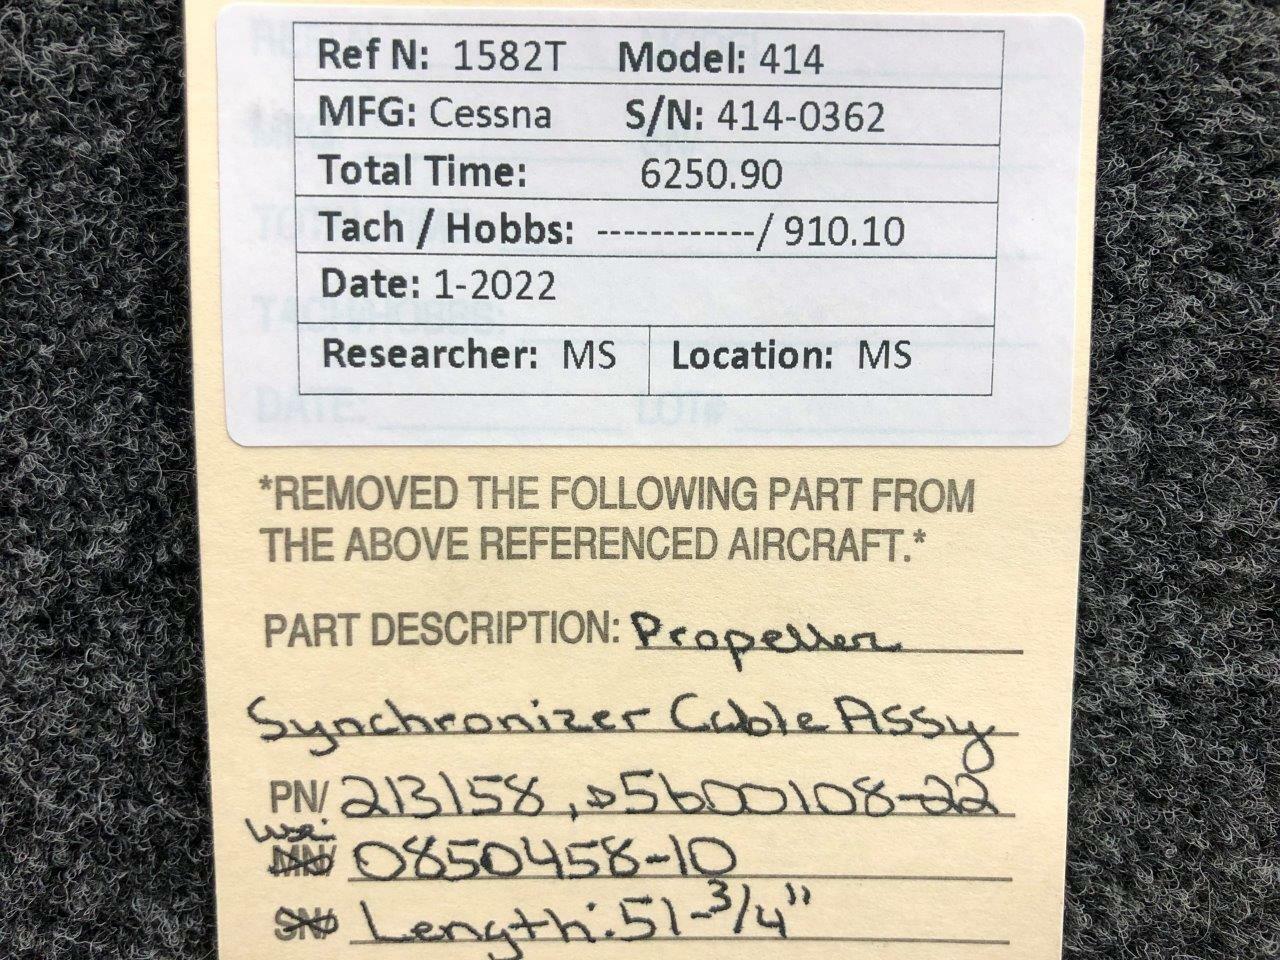 Ref N: 1582T Model: 414
MFG: Cessna S/N: 414-0362
Total Time: 6250.90
Tach / Hobbs: ------------/ 910.10
Date: 1-2022
Researcher: MS Location: MS
DATE: LOT#
*REMOVED THE FOLLOWING PART FROM
THE ABOVE REFERENCED AIRCRAFT.*
PART DESCRIPTION: Propeller
Synchronizer Cable Assy
PN/ 213158, S5600108-22
Use:
MN/ 0850458-10
SN/ Length: 51-3/4"